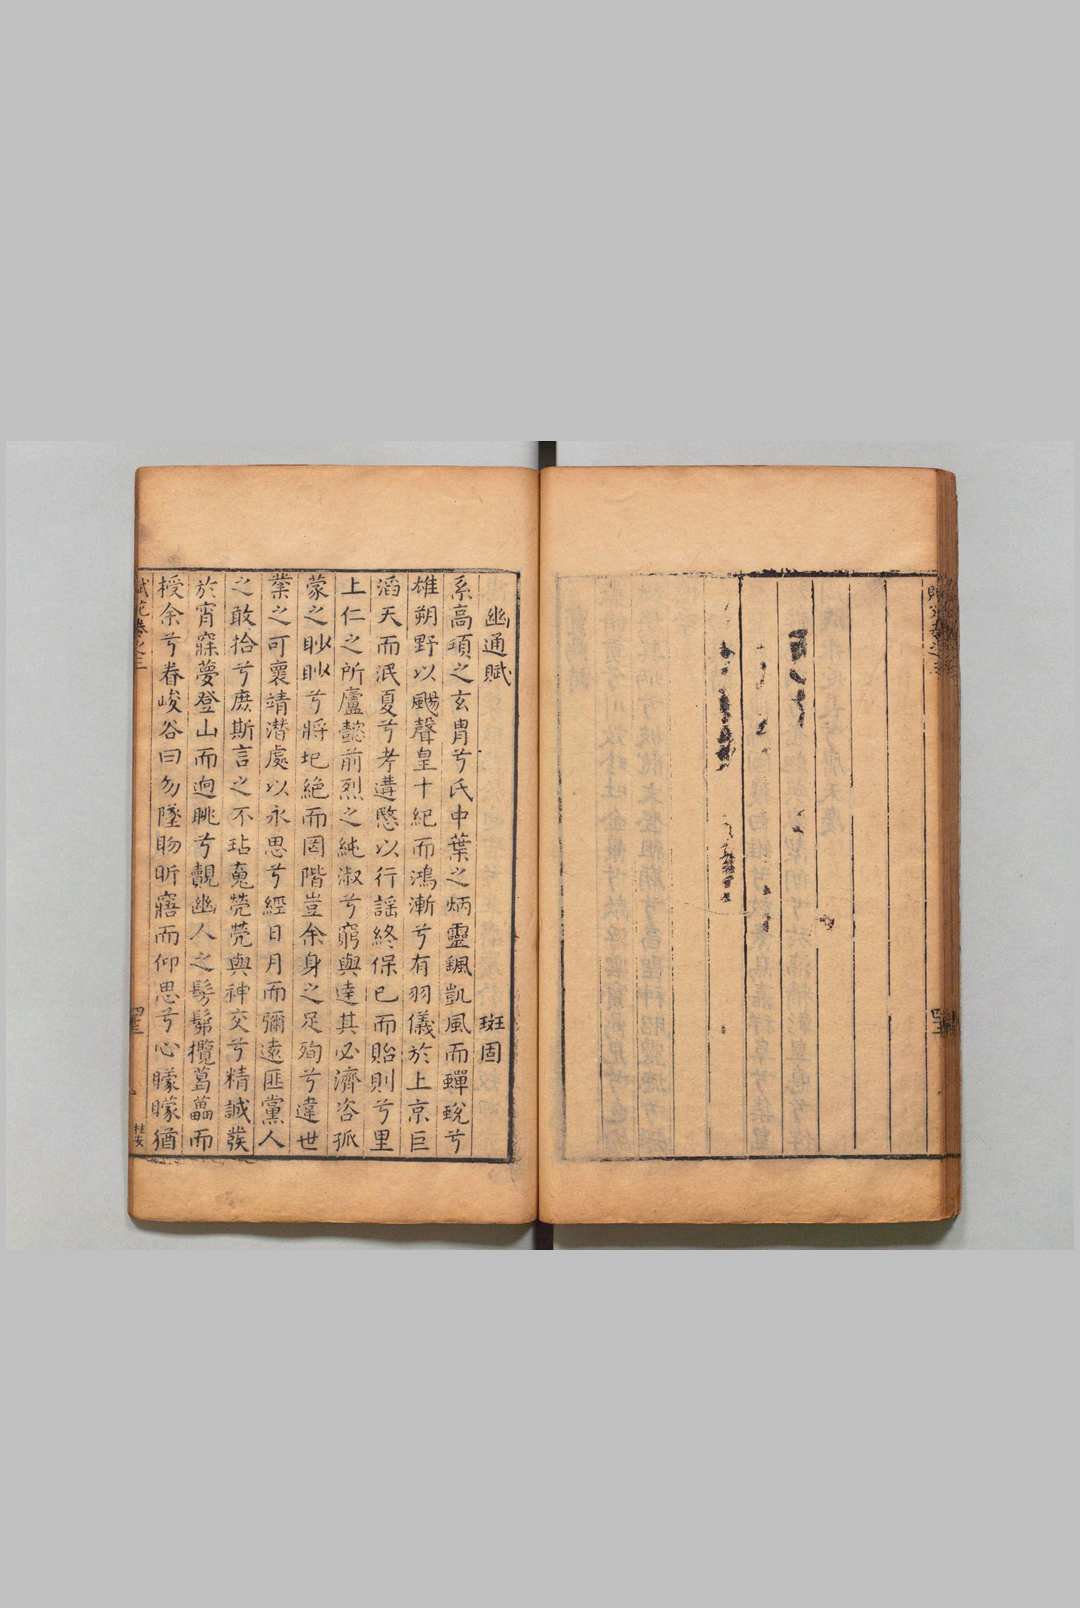 幽通賦　班固
系高頊之玄胄兮氏中葉之炳靈颻凱風而蟬蛻兮
雄朔野以颺聲皇十紀而鴻漸兮有羽儀於上京巨
滔天而泯夏兮考遘愍以行謠終保已而貽則兮里
上仁之所廬懿前烈之純淑兮窮與達其必濟咨孤
蒙之眇眇兮將圮絶而罔階豈余身之足殉兮違世
業之可褱靖潜處以永思兮經日月而彌遠匪黨人
之敢拾兮庶斯言之不玷䰟煢煢與神交兮精誠發
於宵寐夢登山而逈眺兮覿幽人之髣髴攬葛藟而
授余兮眷峻谷曰勿墜昒昕寤而仰思兮心矇矇猶
賦苑卷之三